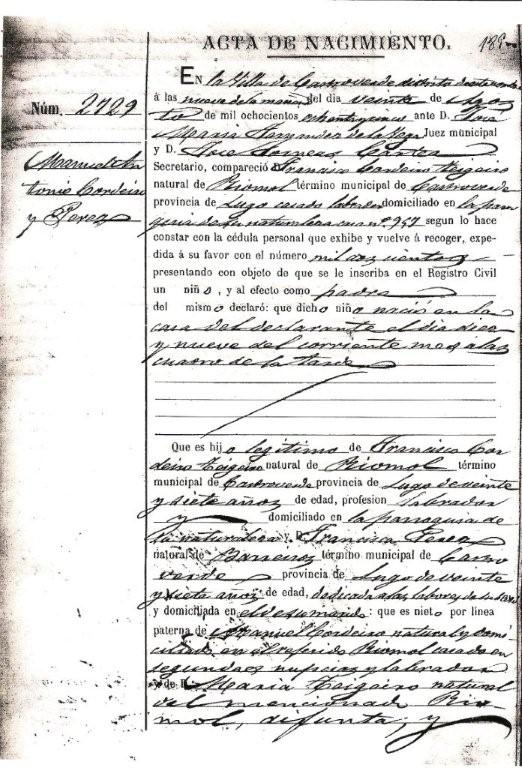 ACTA DE NACIMIENTO.
Núm. 2729
Manuel An
tonio Cordeiro
y Perez
EN la Villa de Castroverde distrito
á las nueve de la mañana del dia veinte de Agos
to de mil ochocientos ante D. José
Maria Juez municipal
y D. José
Secretario, compareció Francisco Cordeiro Teigeiro
natural de Riomol término municipal de Castroverde
provincia de Lugo casado labrador domiciliado en la parro
quia de su naturaleza nº 957 segun lo hace
constar con la cédula personal que exhibe y vuelve á recoger, expe-
dida á su favor con el número mil doscientos
presentando con objeto de que se le inscriba en el Registro Civil
un niño, y al efecto como padre
del mismo declaró: que dicho niño nació en la
casa del declarante el dia diez
y nueve del corriente mes á las
cuatro de la tarde
Que es hijo legítimo de Francisco Cor
deiro Teigeiro natural de Riomol término
municipal de Castroverde provincia de Lugo de veinte
y siete años de edad, profesion labrador
y domiciliado en la parroquia de
su naturaleza y D. Francisca Perez
natural de Barreiros término municipal de Castro
verde provincia de Lugo de veinte
y siete años de edad, dedicada á las labores de su sexo
y domiciliada en el de su marido: que es nieto por línea
paterna de Manuel Cordeiro natural y domi
ciliado en el referido Riomol casado en
segundas nupcias y labrador
y de D. Maria Teigeiro natural
del mencionado Rio
mol, difunta, y